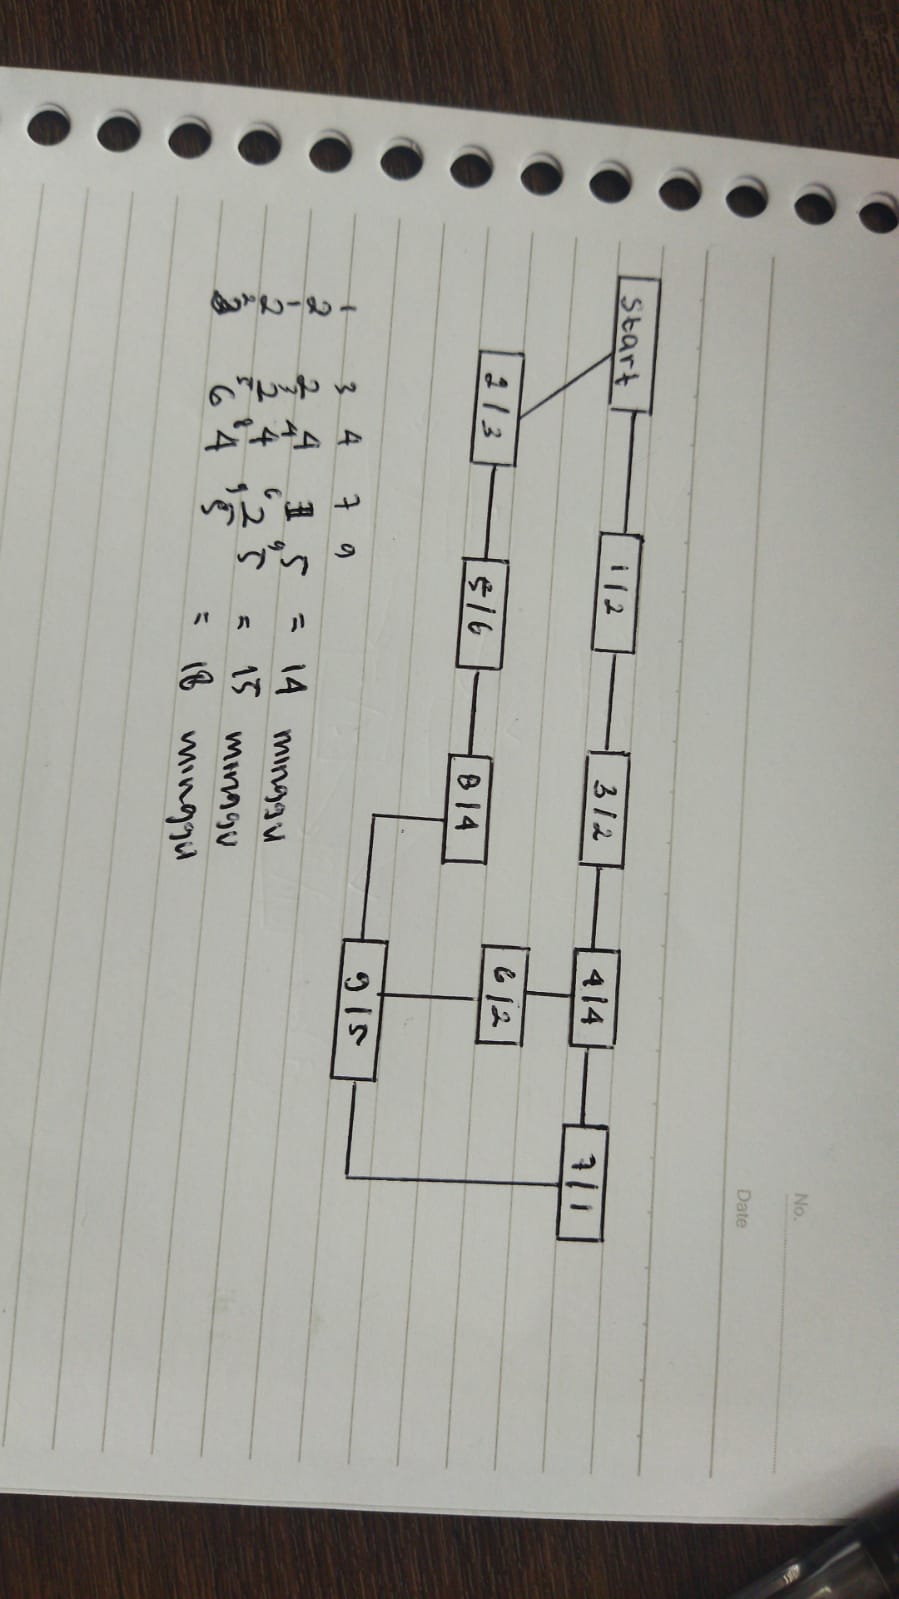 No.
Date
Start
1/2
3/2
4/4
7/1
2/3
5/6
8/4
6/2
9/5
1 3 4 7 9
2 2 4 1 5 = 14 minggu
1 3 4 6 9
2 2 4 2 5 = 15 minggu
2 5 8 9
3 6 4 5 = 18 minggu